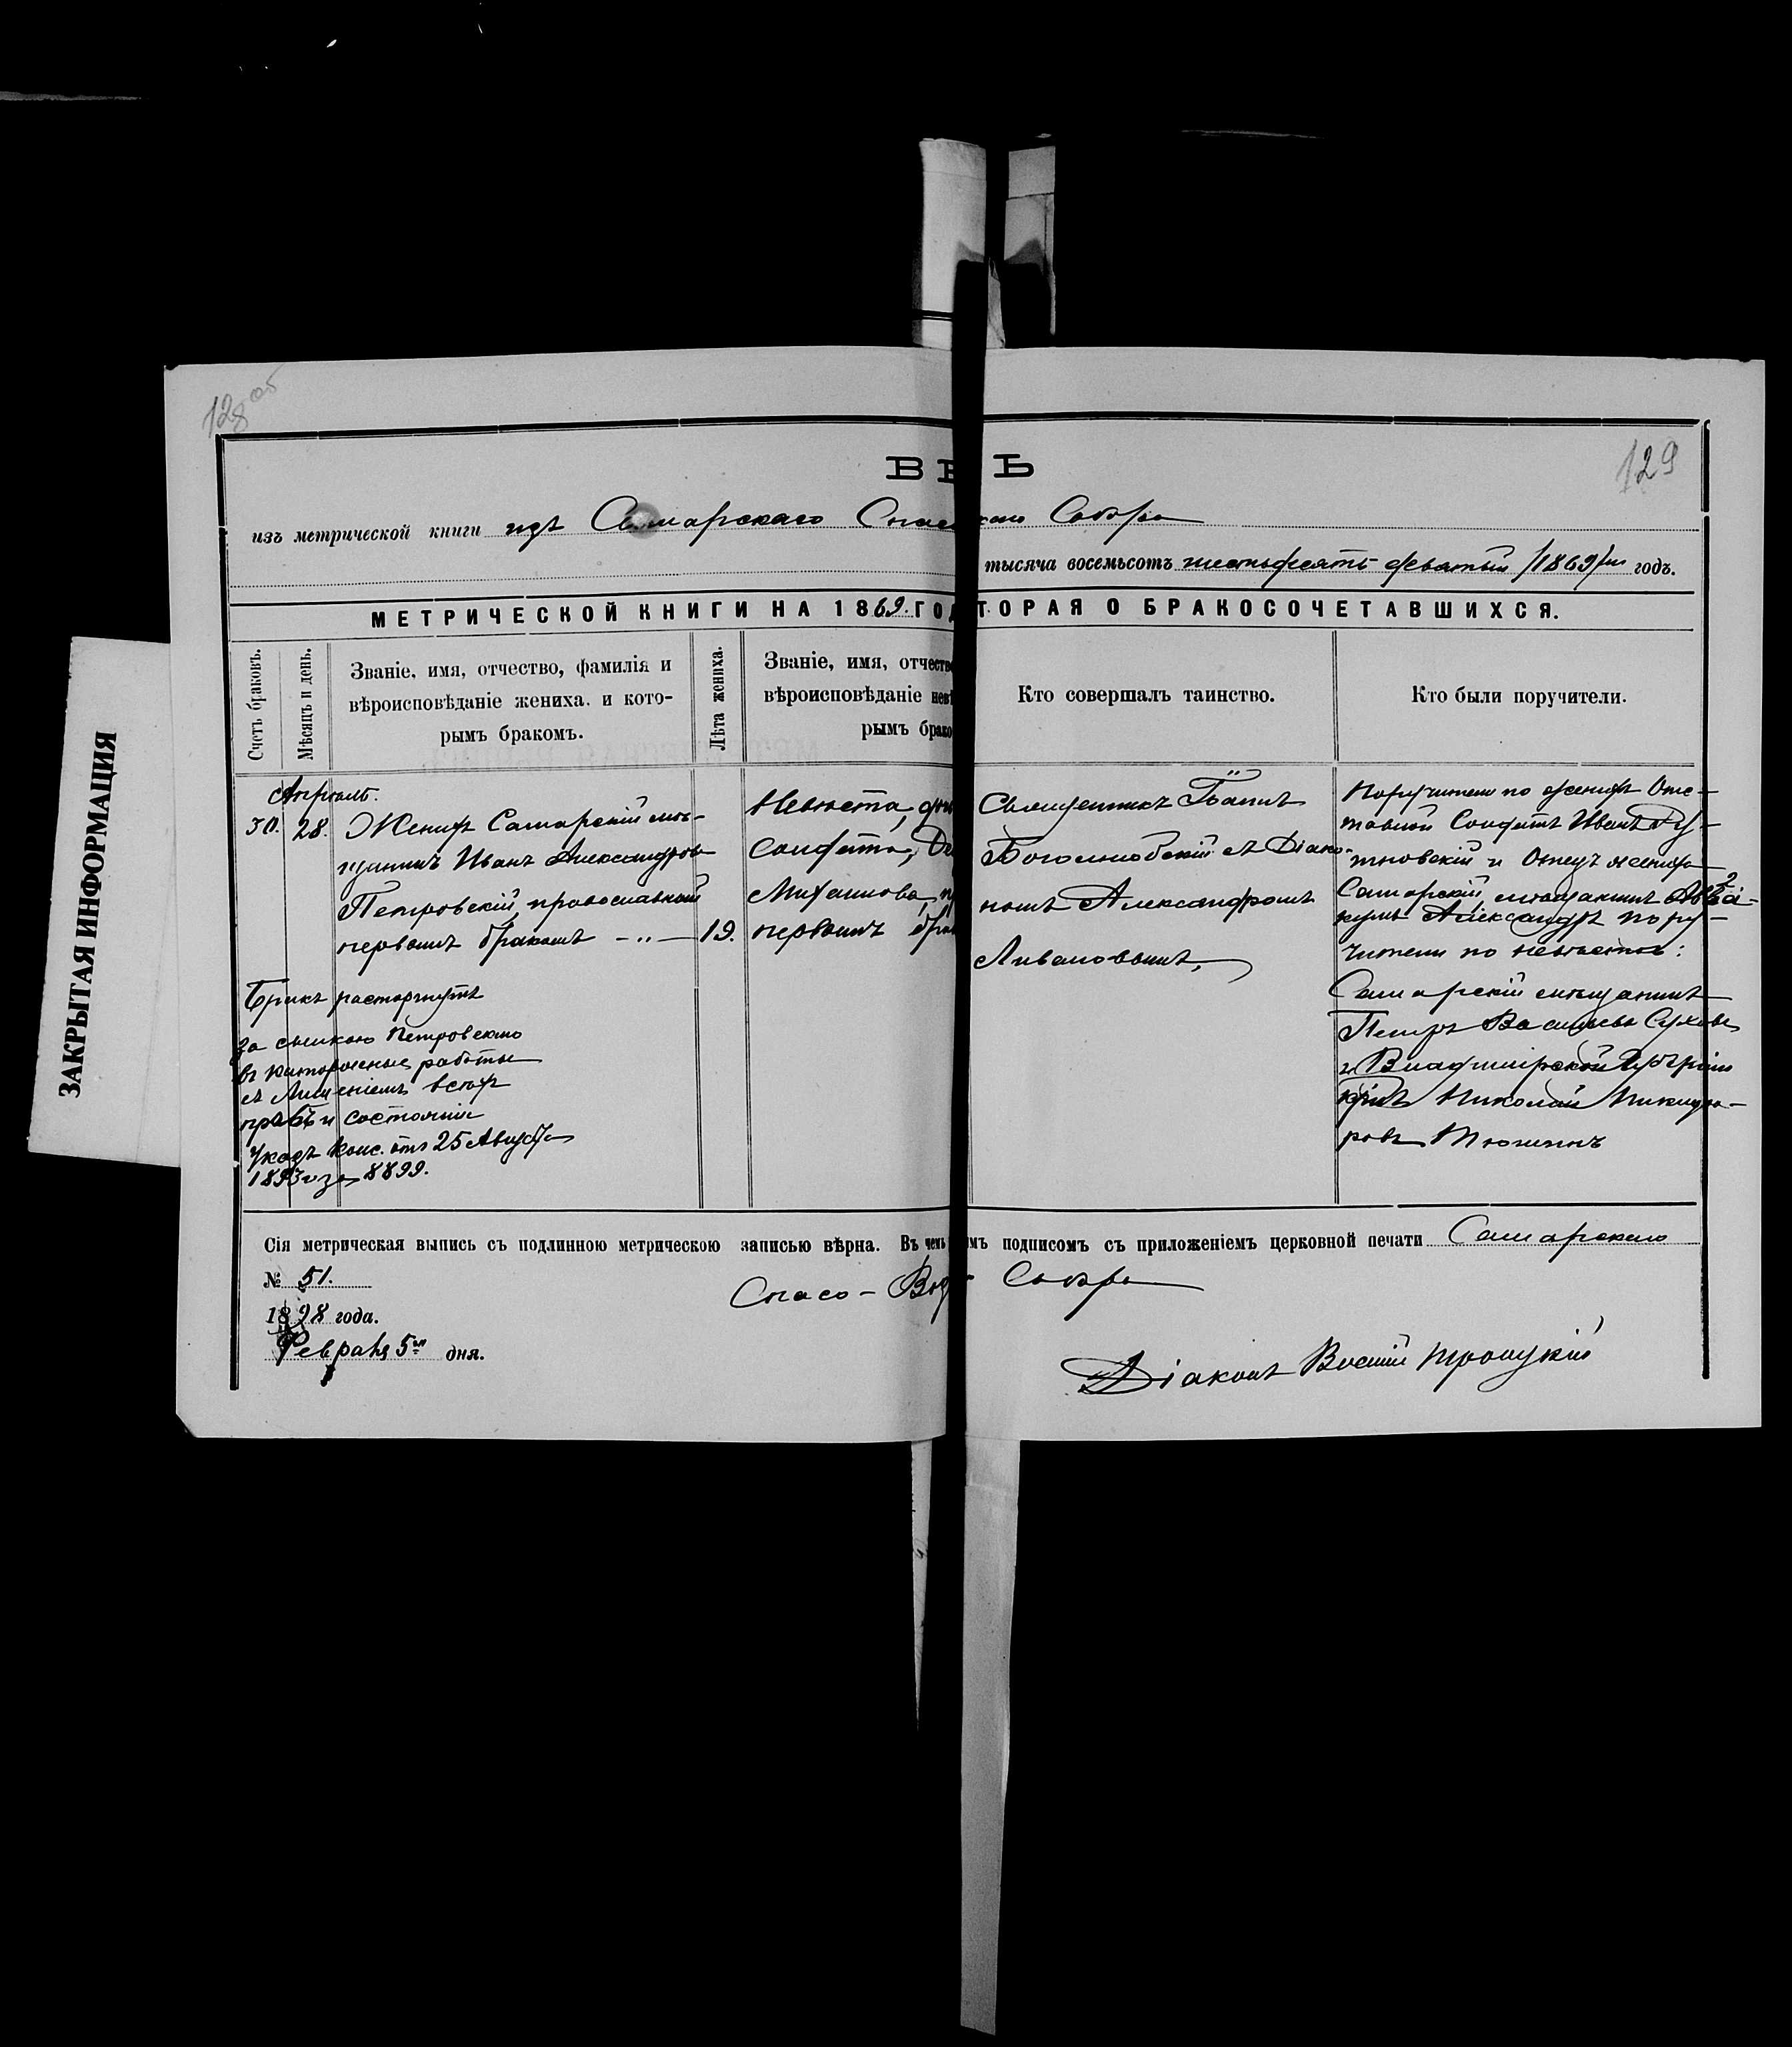 128 об
129
ВЕ Ь
изъ метрической книги изъ Самарскаго Спас скаго Собора
тысяча восемьсотъ шестьдесятъ девятый /1869/ годъ.
МЕТРИЧЕСКОЙ КНИГИ НА 1869 ГОД ТОРАЯ О БРАКОСОЧЕТАВШИХСЯ.
Счетъ браковъ.
Мѣсяцъ и день.
Званіе, имя, отчество, фамилія и
вѣроисповѣданіе жениха. и кото-
рымъ бракомъ.
Лѣта жениха.
Званіе, имя, отчество
вѣроисповѣданіе невѣ
рымъ брако
Кто совершалъ таинство.
Кто были поручители.
30.
Апрѣль.
28.
Женихъ Самарскій мѣ-
щанинъ Иванъ Александровъ
Петровскій, православный
первымъ бракомъ – „ –
19.
Невѣста, до
солдата,
Михаилова, п
первымъ бра
Священникъ Іоаннъ
Боголюбскій съ Діако-
номъ Александромъ
Ливановымъ,
Поручители по женихѣ Отс-
тавной Солдатъ Иванъ
тновскій и Отецъ жениха
Самарскій мѣщанинъ
Александръ пору-
чители по невѣстѣ:
Самарскій мѣщанинъ
Петръ Васильевъ
и Владимірской Губерніи
Николай Никифо-
ровъ Тюнинъ
Бракъ расторгнутъ
за ссылкою Петровскаго
въ каторжные работы
съ Лишеніемъ всѣхъ
правъ и состоянія
Указъ Конс. отъ 25 Августа
1893 г за 8899.
Сія метрическая выпись съ подлинною метрическою записью вѣрна. Въ чемъ мъ подписомъ съ приложеніемъ церковной печати Самарскаго
Спасо – Воз Собора
№ 51.
1898 года.
Февраля 5 го дня.
Діаконъ Василій Троицкій
ЗАКРЫТАЯ ИНФОРМАЦИЯ